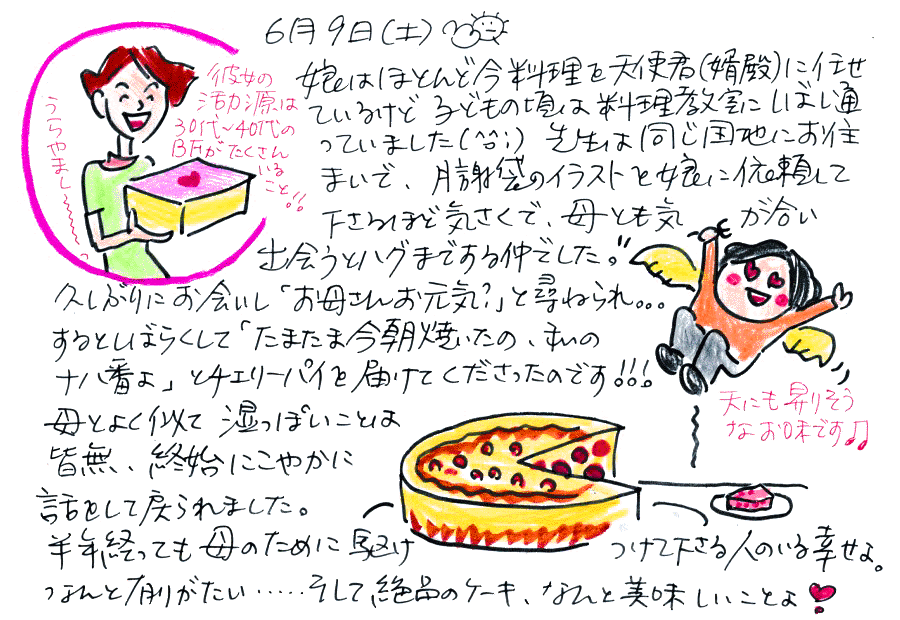 6月9日(土)
娘はほとんど今料理を天使君(婿殿)に任せ
ているけど 子どもの頃は料理教室にしばし通
っていました(^^;) 先生は同じ団地にお住
まいで、月謝袋のイラストを娘に依頼して
下さるほど気さくで、母とも気が合い
出会うとハグまでする仲でした。
久しぶりにお会いし「お母さんお元気?」と尋ねられ...
するとしばらくして「たまたま今朝焼いたの、私の
十八番よ」とチェリーパイを届けてくださったのです!!!
母とよく似て 湿っぽいことは
皆無、終始にこやかに
話をして戻られました。
半年経っても母のために駆けつけて下さる人のいる幸せよ。
なんと有りがたい……そして絶品のケーキ、なんと美味しいことよ
彼女の
活力源は
30代~40代の
BFがたくさん
いる
こと!!
うらやまし~~~っ
天にも昇りそう
なお味です♫